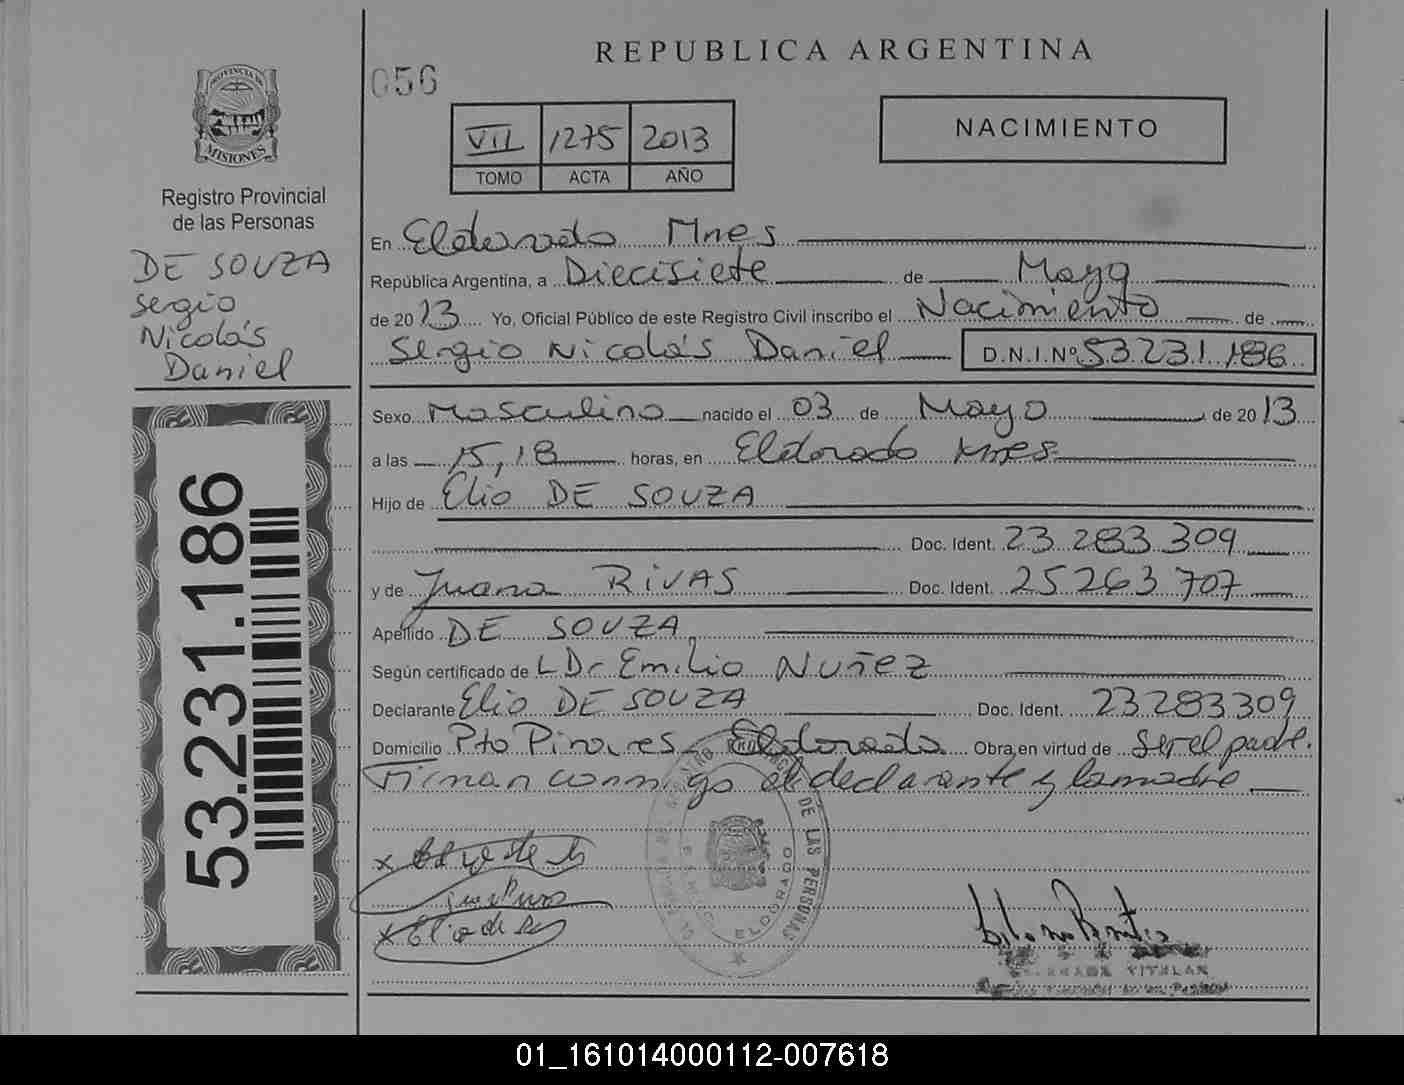 REPUBLICA ARGENTINA
056
PROVINCIA DE
MISIONES
Registro Provincial
de las Personas
DE SOUZA
Sergio
Nicolás
Daniel
53.231.186
VII 1275 2013
TOMO ACTA AÑO
NACIMIENTO
En Eldorado Mnes
República Argentina, a Diecisiete de Mayo
de 2013 Yo, Oficial Público de este Registro Civil inscribo el Nacimiento de
Sergio Nicolás Daniel D.N.I.Nº 53.231.186
Sexo Masculino nacido el 03 de Mayo de 2013
a las 15,18 horas, en Eldorado Mnes
Hijo de Elio DE SOUZA
Doc. Ident. 23 283 309
y de Juana RIVAS Doc. Ident. 25263 707
Apellido DE SOUZA
Según certificado de L Dr Emilio NUÑEZ
Declarante Elio DE SOUZA Doc. Ident. 23283309
Domicilio Pto Pinares Eldorado Obra en virtud de ser el padre.
Firman conmigo el declarante y la madre
DE LAS PERSONAS
ELDORADO
01_161014000112-007618